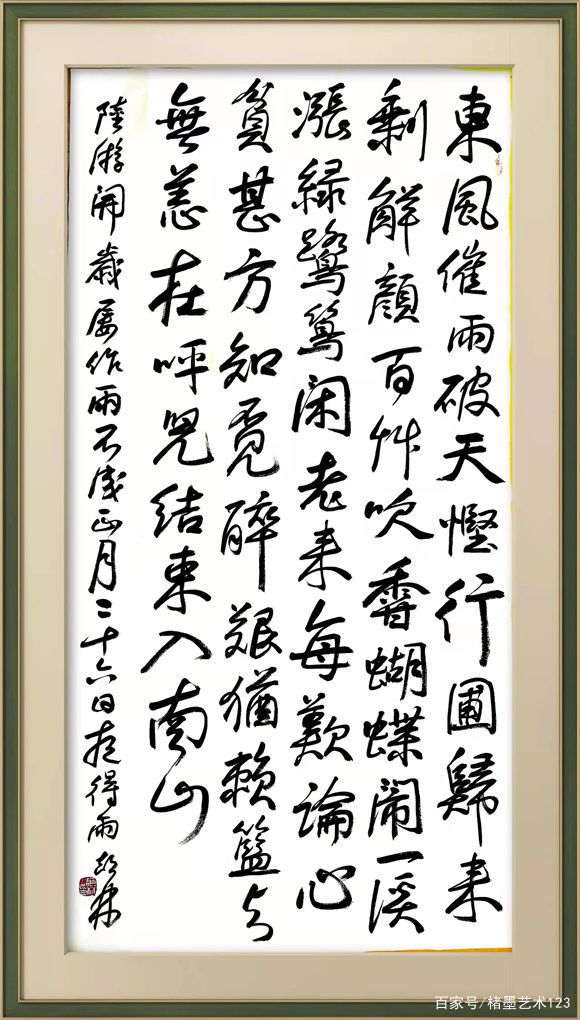 東風催雨破天慳行圃歸来
剩解顏百艸吹香蝴蝶鬧一溪
漲緑鷺鷥闲老来每歎論心
貧甚方知覓醉艱猶賴籃与
無恙在呼兒結束入南山
陸游開歲屡作雨不成正月二十六日夜得雨
百家号/楮墨艺术123